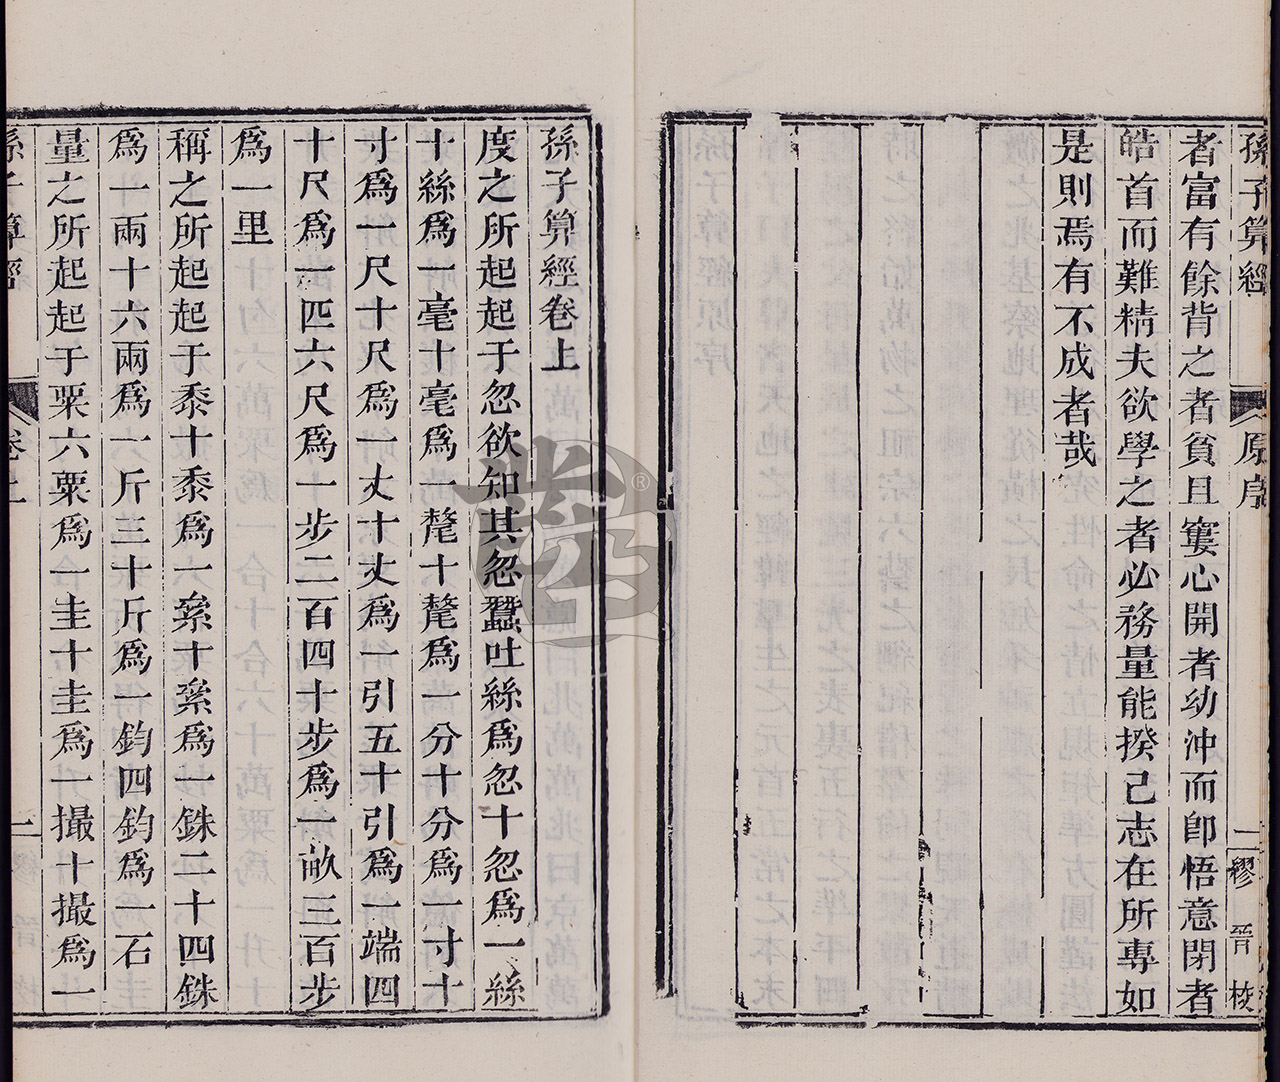 孫子算經 原序 二 繆晉校
者富有餘背之者貧且窶心開者幼沖而卽悟意閉者
皓首而難精夫欲學之者必務量能揆己志在所專如
是則焉有不成者哉
孫子算經卷上
度之所起起于忽欲知其忽蠶吐絲爲忽十忽爲一絲
十絲爲一毫十毫爲一氂十氂爲一分十分爲一寸十
寸爲一尺十尺爲一丈十丈爲一引五十引爲一端四
十尺爲一匹六尺爲一步二百四十步爲一畝三百步
爲一里
稱之所起起于黍十黍爲一絫十絫爲一銖二十四銖
爲一兩十六兩爲一斤三十斤爲一鈞四鈞爲一石
量之所起起于粟六粟爲一圭十圭爲一撮十撮爲一
孫子算經 卷上 一